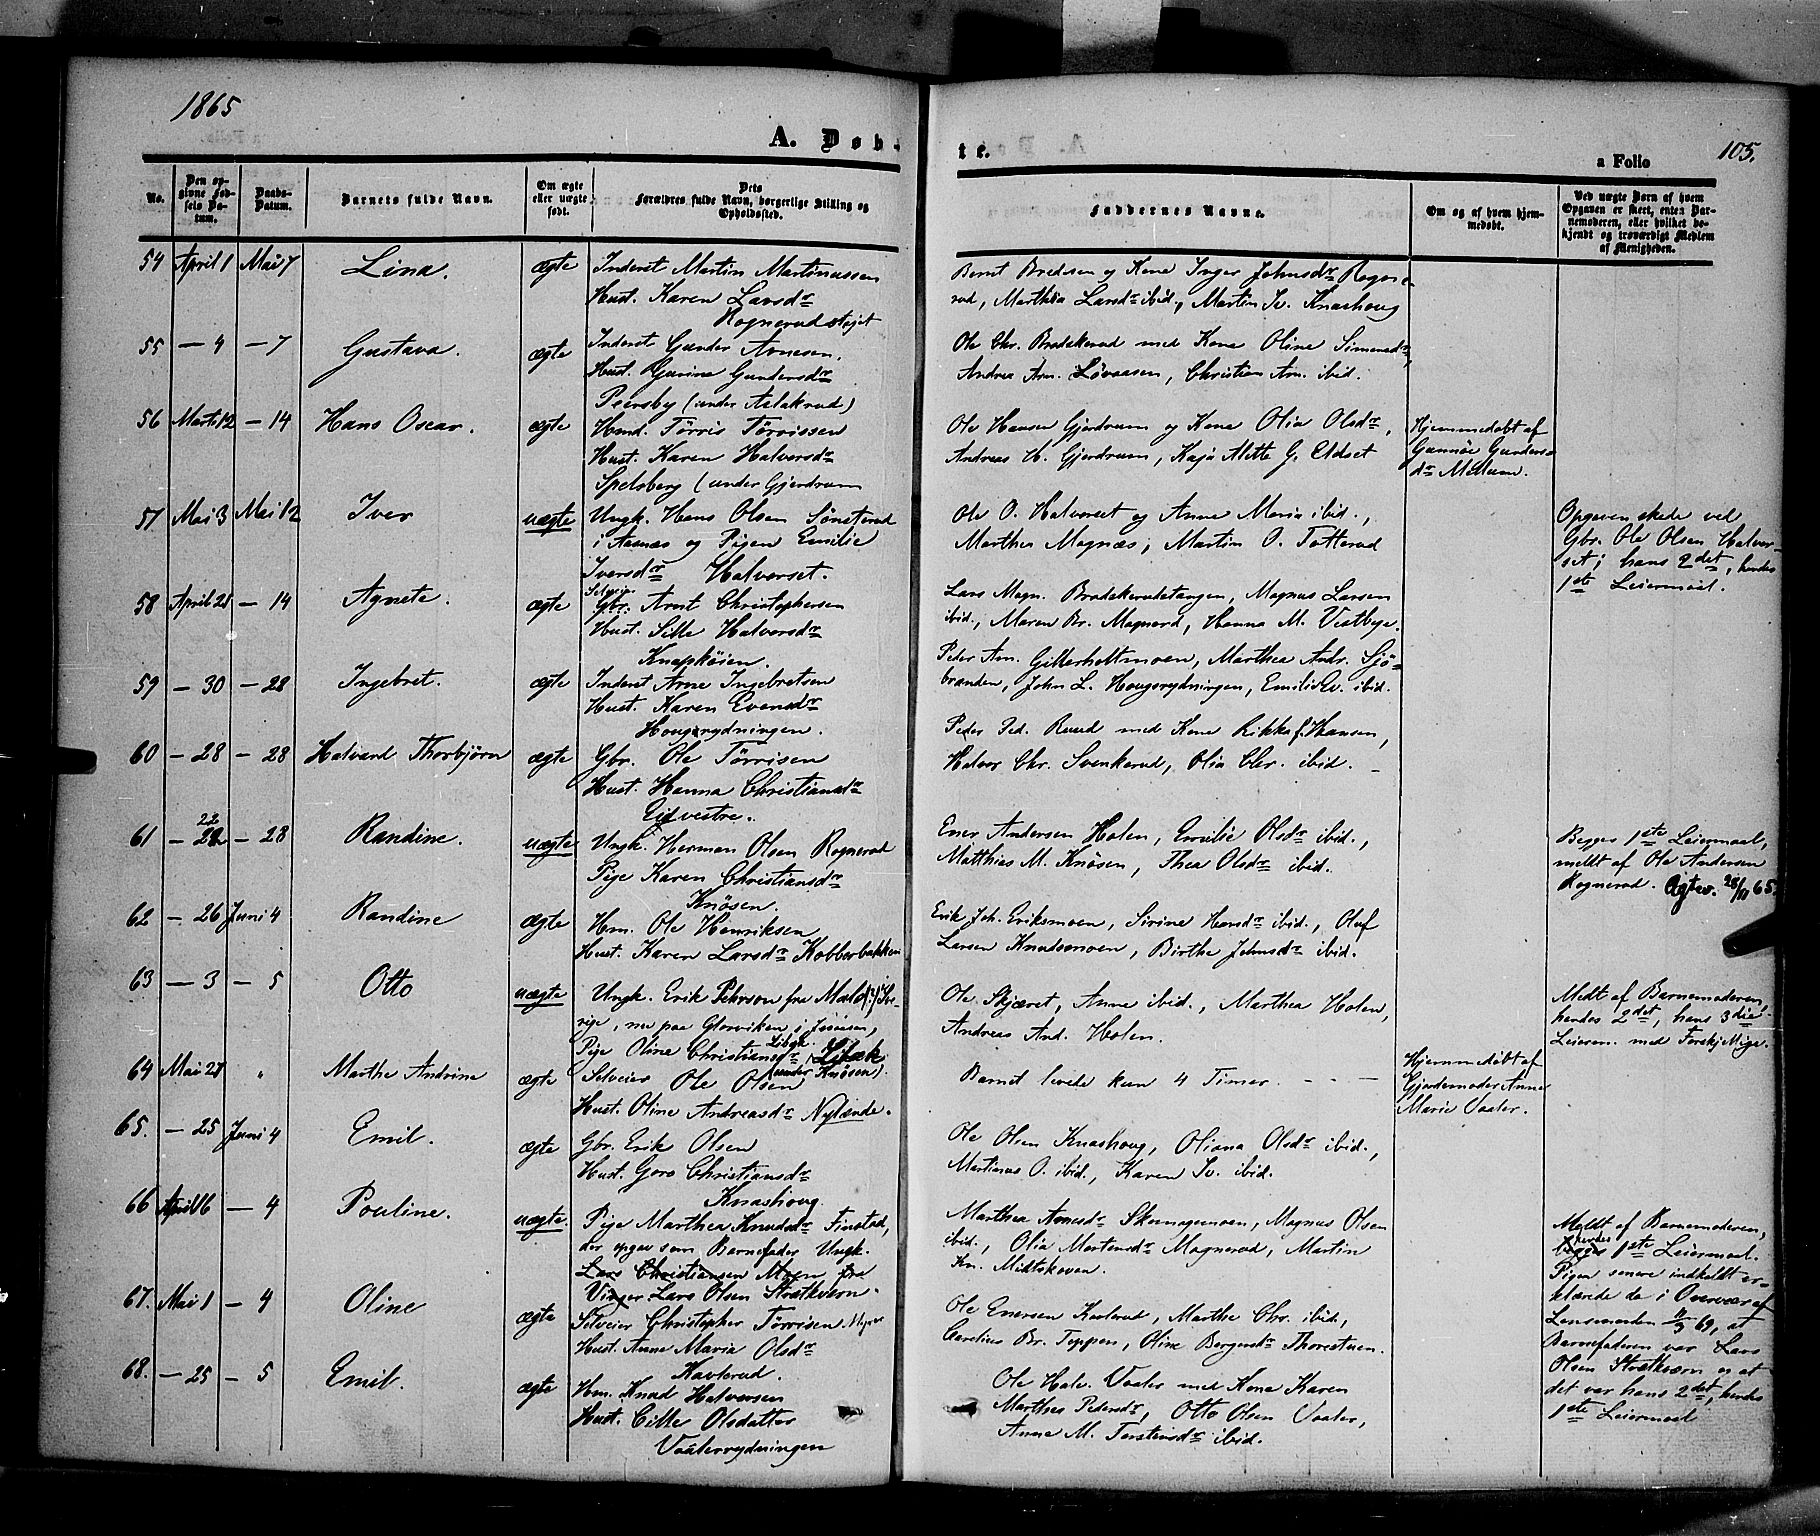 1865
A. Døb-
te.
a Folio
105.
No.
Den op-
givne Fød-
sels Da-
tum.
Daabs-
Datum.
Barnets fulde Navn.
Om ægte
eller uægte
født.
Dets
Forældres fulde Navn, borgerlige Stilling og
Opholdssted.
Faddernes Navne.
Om og af hvem hjem-
medøbt.
Ved uægte Børn af hvem
Opgaven er skeet, enten Bar-
nemoderen, eller hvilket be-
kjendt og troværdigt Medlem
af Menigheden.
54 April 1 Mai 7 Lina. ægte Inderst Martin Martinussen
Hust. Karen Larsdr
Rognerudstejet
Bernt Bredesen og Kone Inger Johnsdr Rogne-
rud, Marthia Larsdr ibid., Martin Iv. Knashoug
55 — 4 — 7 Gustava. ægte Inderst Gunder Arnesen.
Hust. Gurine Gundersdr
Peersby (under Aslakrud)
Ole Chr. Bradskerud med Kone Oline Simensdr,
Andrea Arn. Løvaasen, Christian Arn. ibid.
56 Marts 12 — 14 Hans Oscar. ægte Hmd. Tørris Tørrissen
Hust. Karen Halversdr
Spelsberg (under Gjerdrum
Ole Hansen Gjerdrum og Kone Olia Olsdr,
Andreas H. Gjerdrum, Kaja Alette G. Eldset
Hjemmedøbt af
Gunnor Gunders-
dr Melum.
57 Mai 3 Mai 12 Iver uægte Ungk. Hans Olsen Sønsterud
i Aasnæs og Pigen Emilie
Iversdr Halverset.
Ole O. Halverset og Anne Maria ibid.,
Marthea Magnæs, Martin O. Totterud
Opgaven skede ved
Gbr. Ole Olsen Halver-
set; hans 2det, hendes
1ste Leiermaal.
58 April 21 — 14 Agnete. ægte Selveier
Gbr. Arnt Christophersen
Hust. Sille Halversdr
Knapkøien.
Lars Magn. Bradskerudstangen, Magnus Larsen
ibid., Maren Br. Magnerd, Hanna M. Vestbye.
59 — 30 — 28 Ingebret. ægte Inderst Arne Ingebretsen
Hust. Karen Evensdr
Hougsrydningen.
Peder Am. Gitterholtmoen, Marthea Andr. Sjö-
branden, John L. Hougsrydningen, Emilie Ev. ibid.
60 — 28 — 28 Halvard Thorbjørn ægte Gbr. Ole Tørrisen
Hust. Hanna Christiansdr
Eidvestre.
Peder Ped. Ruud med Kone Rikke f. Hansen,
Halvor Chr. Svenkerud, Olia Chr. ibid. —
61 — 22 — 28 Randine. uægte Ungk. Herman Olsen Rognerud
Pige Karen Christiansdr
Knösen.
Ener Andersen Holen, Emilie Olsdr ibid.,
Matthias M. Knösen, Thea Olsdr ibid.
Begges 1ste Leiermaal,
meldt af Ole Andersen
Rognerud. Ægtev. 28/11 65.
62 — 26 Juni 4 Randine ægte Hm. Ole Henriksen
Hust. Karen Larsdr Kobberbakken
Erik Joh. Eriksmoen, Sirine Hansdr ibid., Oluf
Larsen Knudsmoen, Birthe Johnsdr ibid.
63 — 3 — 5 Otto uægte Ungk. Erik Pehrson fra Malos(?) Sve-
rige, nu paa Glorviken i
Pige Oline Christiansdr Libæk
(under Knösen).
Ole Skjæret, Anne ibid., Marthea Holen,
Andreas And. Holen.
Meldt af Barnemoderen,
hendes 2det, hans 3die
Leierm. med Forskj. Mige.
64 Mai 21 „ Marthe Andrine ægte Selveier Ole Olsen
Hust. Oline Andreasdr Nylænde.
Barnet levede kun 4 Timer. — — —
Hjemmedøbt af
Gjordemoder Anne
Marie Vaaler.
65. — 25 Juni 4 Emil. ægte Gbr. Erik Olsen
Hust. Goro Christiansdr
Knashoug.
Ole Olsen Knashoug, Oliana Olsdr ibid.,
Martinus O. ibid., Karen Iv. ibid.
66 April 16 — 4 Pouline. uægte. Pige Marthea Knudsdr Finstad,
der opgav som Barnefader Ungk.
Lars Christiansen Moen fra
Vinger. Lars Olsen Strætkvern.
Marthea Arnesdr Skinnagsmoen, Magnus Olsen
ibid., Olia Mortensdr Magnerud, Martin
Kn. Midtskoven.
Meldt af Barnemoderen,
hendes
begges 1ste Leiermaal.
Pigen senere indkaldt er-
klærede da i Overvær af
Lensmanden 69, at
Barnefaderen var Lars
Olsen Strætkværn og at
det var hans 2det, hendes
1ste Leiermaal
67. Mai 1 — 4 Oline ægte Selveier Christopher Tørrisen
Hust. Anne Maria Olsdr
Kavlerud.
Ole Enersen Kavlerud, Marthe Chr. ibid,
Carelius Br. Teppen, Oline Bergersdr Thorestuen.
68. — 25 — 5 Emil. ægte Hm. Knud Halversen
Hust. Cille Olsdatter
Vaalerrydningen
Ole Halv. Vaaler med Kone Karen
Marthea Pedersdr, Otto Olsen Vaaler,
Anne M. Torstensdr ibid.